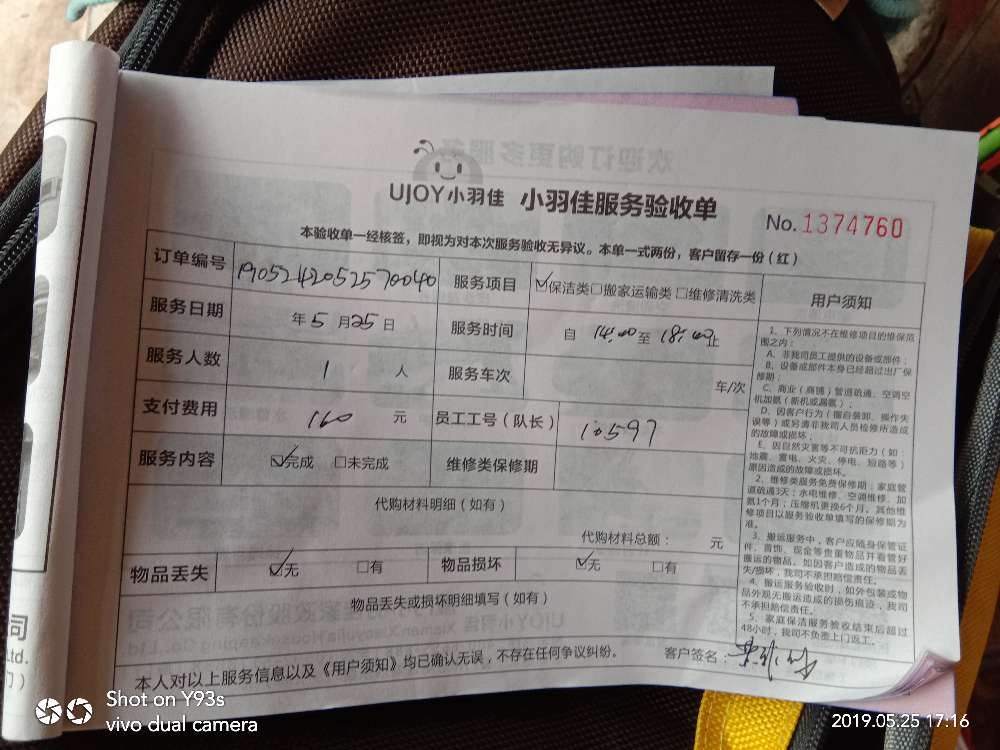 UJOY小羽佳 小羽佳服务验收单
No. 1374760
本验收单一经核签，即视为对本次服务验收无异议。本单一式两份，客户留存一份（红）
订单编号 19052420525570040 服务项目 ☑保洁类□搬家运输类□维修清洗类
服务日期 年5月25日 服务时间 自14:00至18:00止
服务人数 1 人 服务车次 车/次
支付费用 160 元 员工工号（队长） 10597
服务内容 ☑完成 □未完成 维修类保修期
代购材料明细（如有）
代购材料总额： 元
物品丢失 ☑无 □有 物品损坏 ☑无 □有
物品丢失或损坏明细填写（如有）
本人对以上服务信息以及《用户须知》均已确认无误，不存在任何争议纠纷。 客户签名：
用户须知
1、下列情况不在维修项目的维保范
围之内：
A、非我司员工提供的设备或部件；
B、设备或部件本身已经超过出厂保
修期；
C、商业（商铺）管道疏通、空调空
机加氨（新机或漏氨）；
D、因客户行为（擅自装卸、操作失
误等）或另请非我司人员检修所造成
的故障或损坏；
E、因自然灾害等不可抗拒力（如：
地震、雷电、火灾、停电、短路等）
原因造成的故障或损坏。
2、维修类服务免费保修期：家庭管
道疏通3天；水电维修、空调维修、加
氨1个月；压缩机更换6个月。其他维
修项目以服务验收单填写的保修期为
准。
3、搬运服务中，客户应随身保管证
件、首饰、现金等贵重物品并看管好
搬运的物品。如因客户造成的物品丢
失/损坏，我司不承担赔偿责任。
4、搬运服务验收时，如外包装或物
品外观无搬运造成的损伤痕迹，我司
不承担赔偿责任。
5、家庭保洁服务验收结束后超过
48小时，我司不负责上门返工。
司
Ltd.
门）
Shot on Y93s
vivo dual camera
2019.05.25 17:16